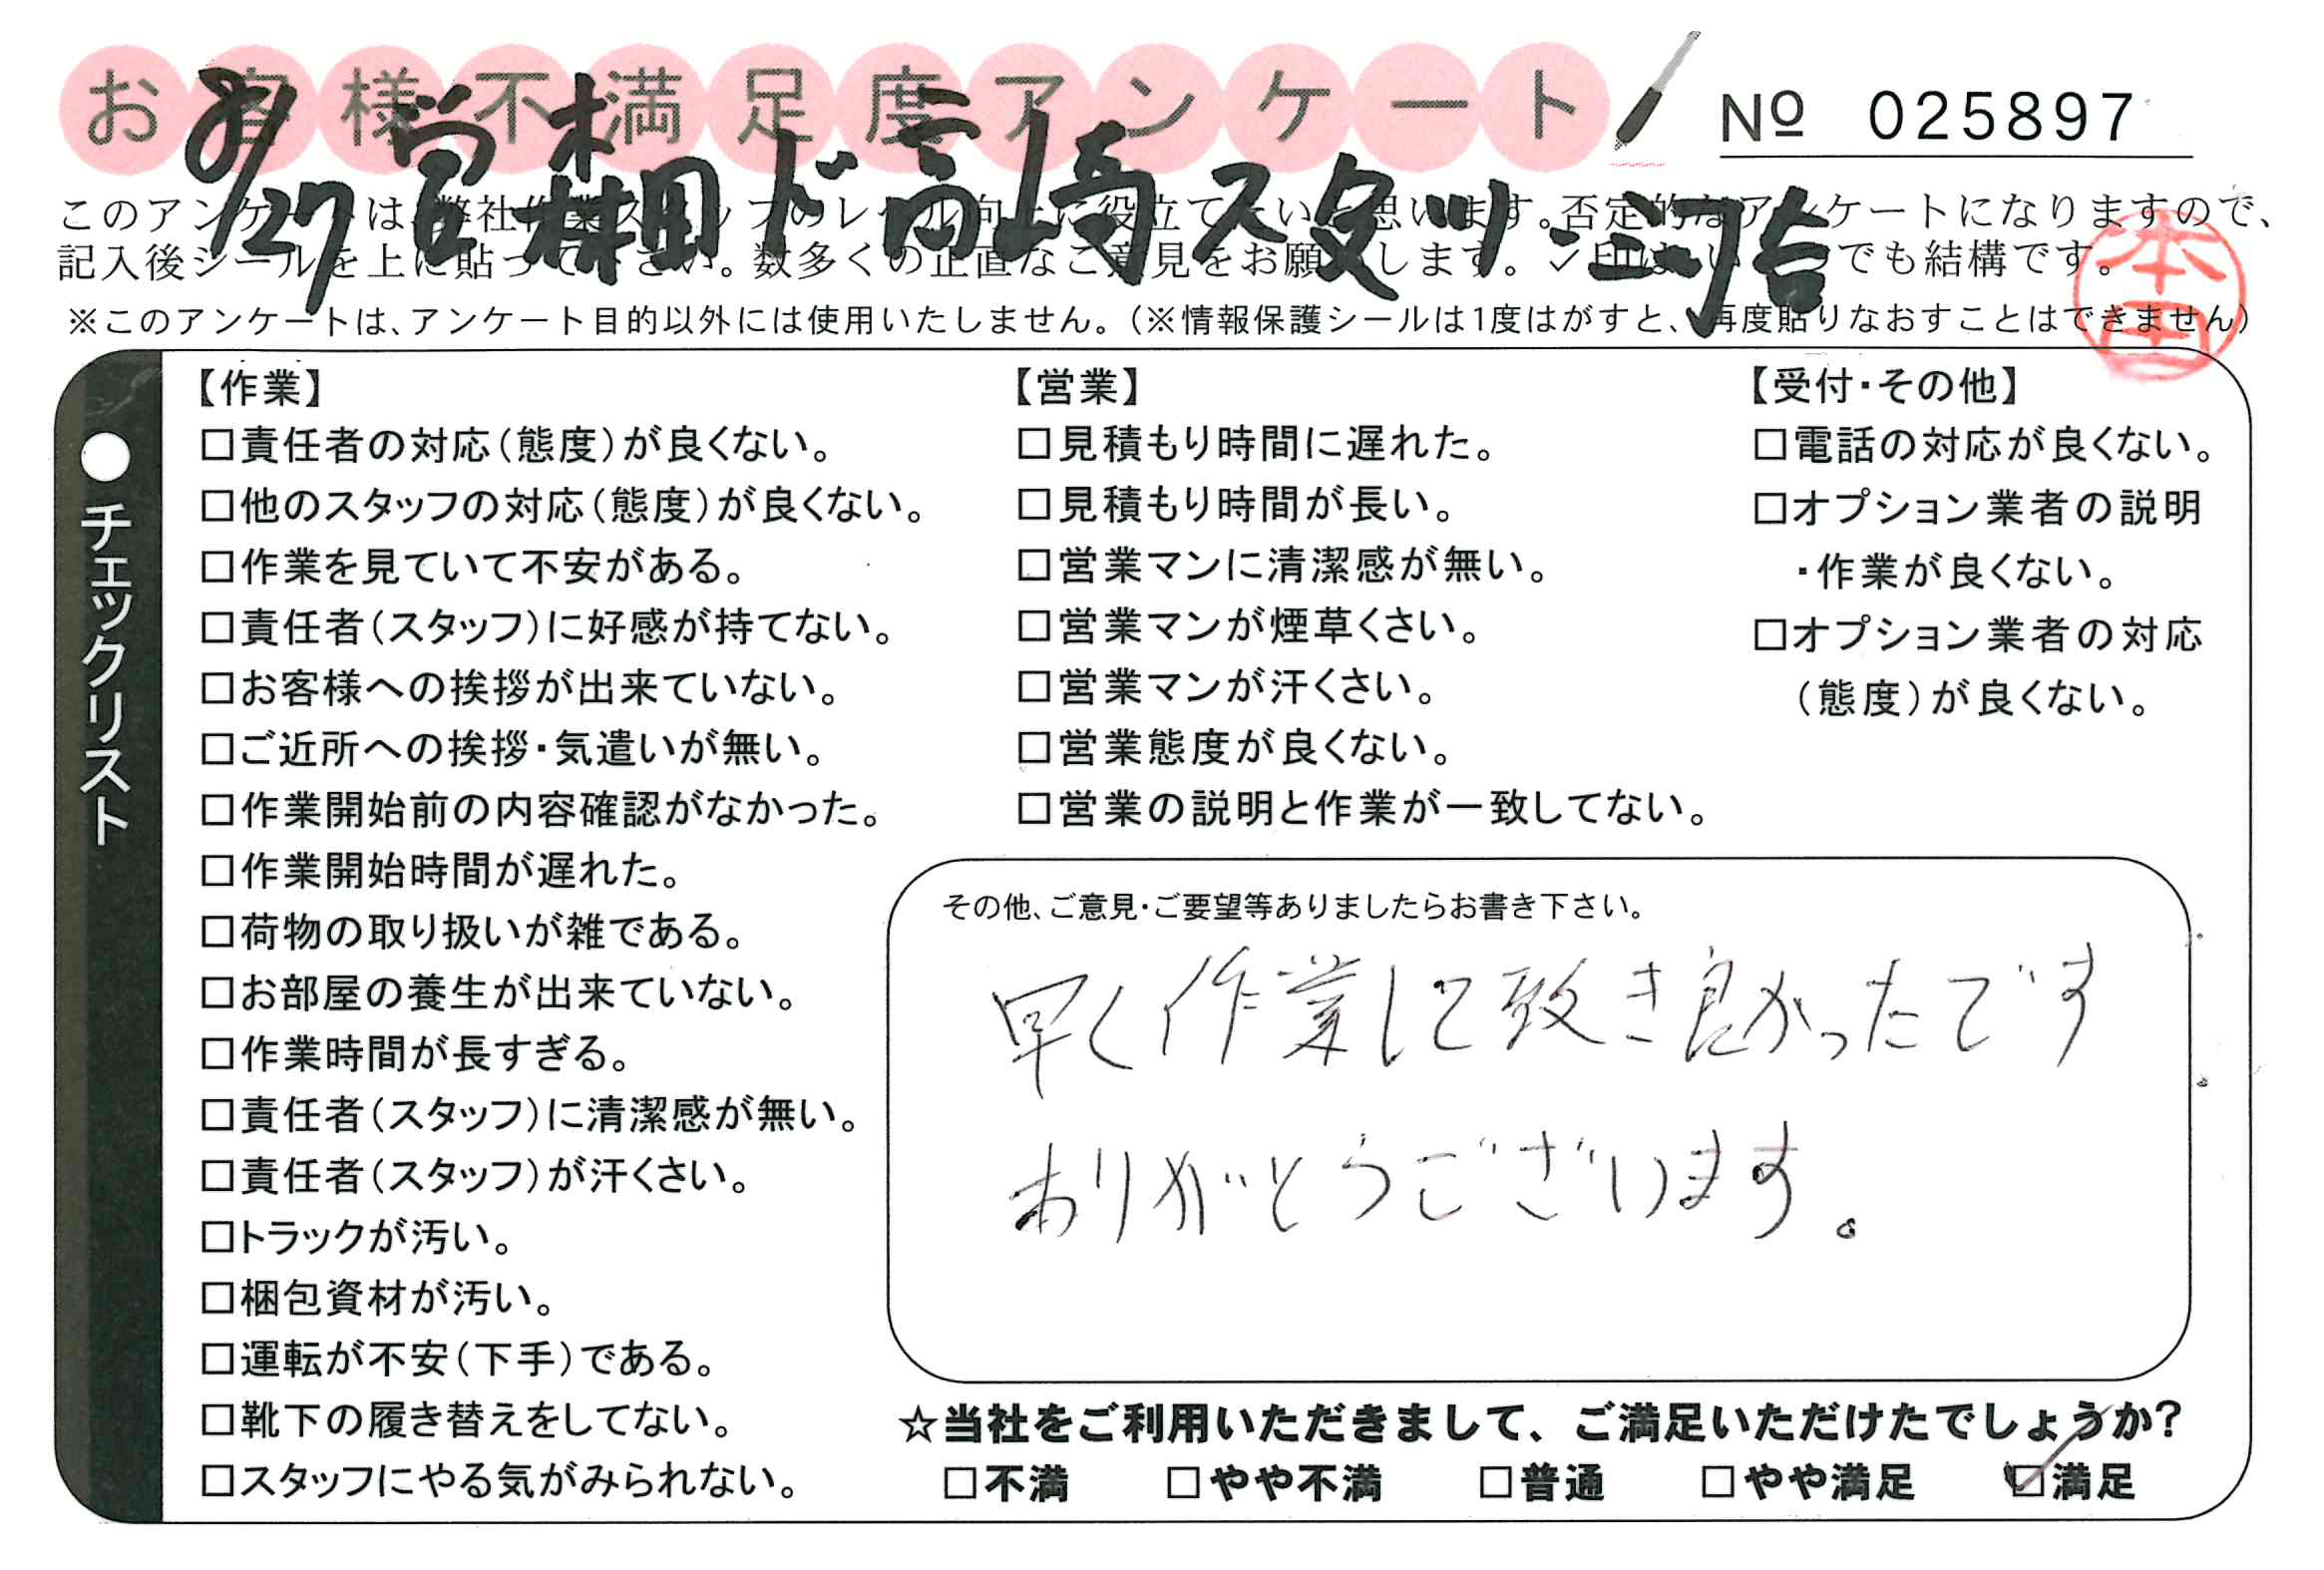 お客様不満足度アンケート
№ 025897
8/27
このアンケートは、弊社作業スタッフのレベル向上に役立てたいと思います。否定的なアンケートになりますので、
記入後シールを上に貼って下さい。数多くの正直なご意見をお願いします。✓印はいくつでも結構です。
※このアンケートは、アンケート目的以外には使用いたしません。（※情報保護シールは1度はがすと、再度貼りなおすことはできません）
本田
●チェックリスト
【作業】
□責任者の対応（態度）が良くない。
□他のスタッフの対応（態度）が良くない。
□作業を見ていて不安がある。
□責任者（スタッフ）に好感が持てない。
□お客様への挨拶が出来ていない。
□ご近所への挨拶・気遣いが無い。
□作業開始前の内容確認がなかった。
□作業開始時間が遅れた。
□荷物の取り扱いが雑である。
□お部屋の養生が出来ていない。
□作業時間が長すぎる。
□責任者（スタッフ）に清潔感が無い。
□責任者（スタッフ）が汗くさい。
□トラックが汚い。
□梱包資材が汚い。
□運転が不安（下手）である。
□靴下の履き替えをしてない。
□スタッフにやる気がみられない。
【営業】
□見積もり時間に遅れた。
□見積もり時間が長い。
□営業マンに清潔感が無い。
□営業マンが煙草くさい。
□営業マンが汗くさい。
□営業態度が良くない。
□営業の説明と作業が一致してない。
【受付・その他】
□電話の対応が良くない。
□オプション業者の説明
・作業が良くない。
□オプション業者の対応
（態度）が良くない。
その他、ご意見・ご要望等ありましたらお書き下さい。
早く作業して致き良かったです
ありがとうございます。
☆当社をご利用いただきまして、ご満足いただけたでしょうか?
□不満 □やや不満 □普通 □やや満足 ☑満足